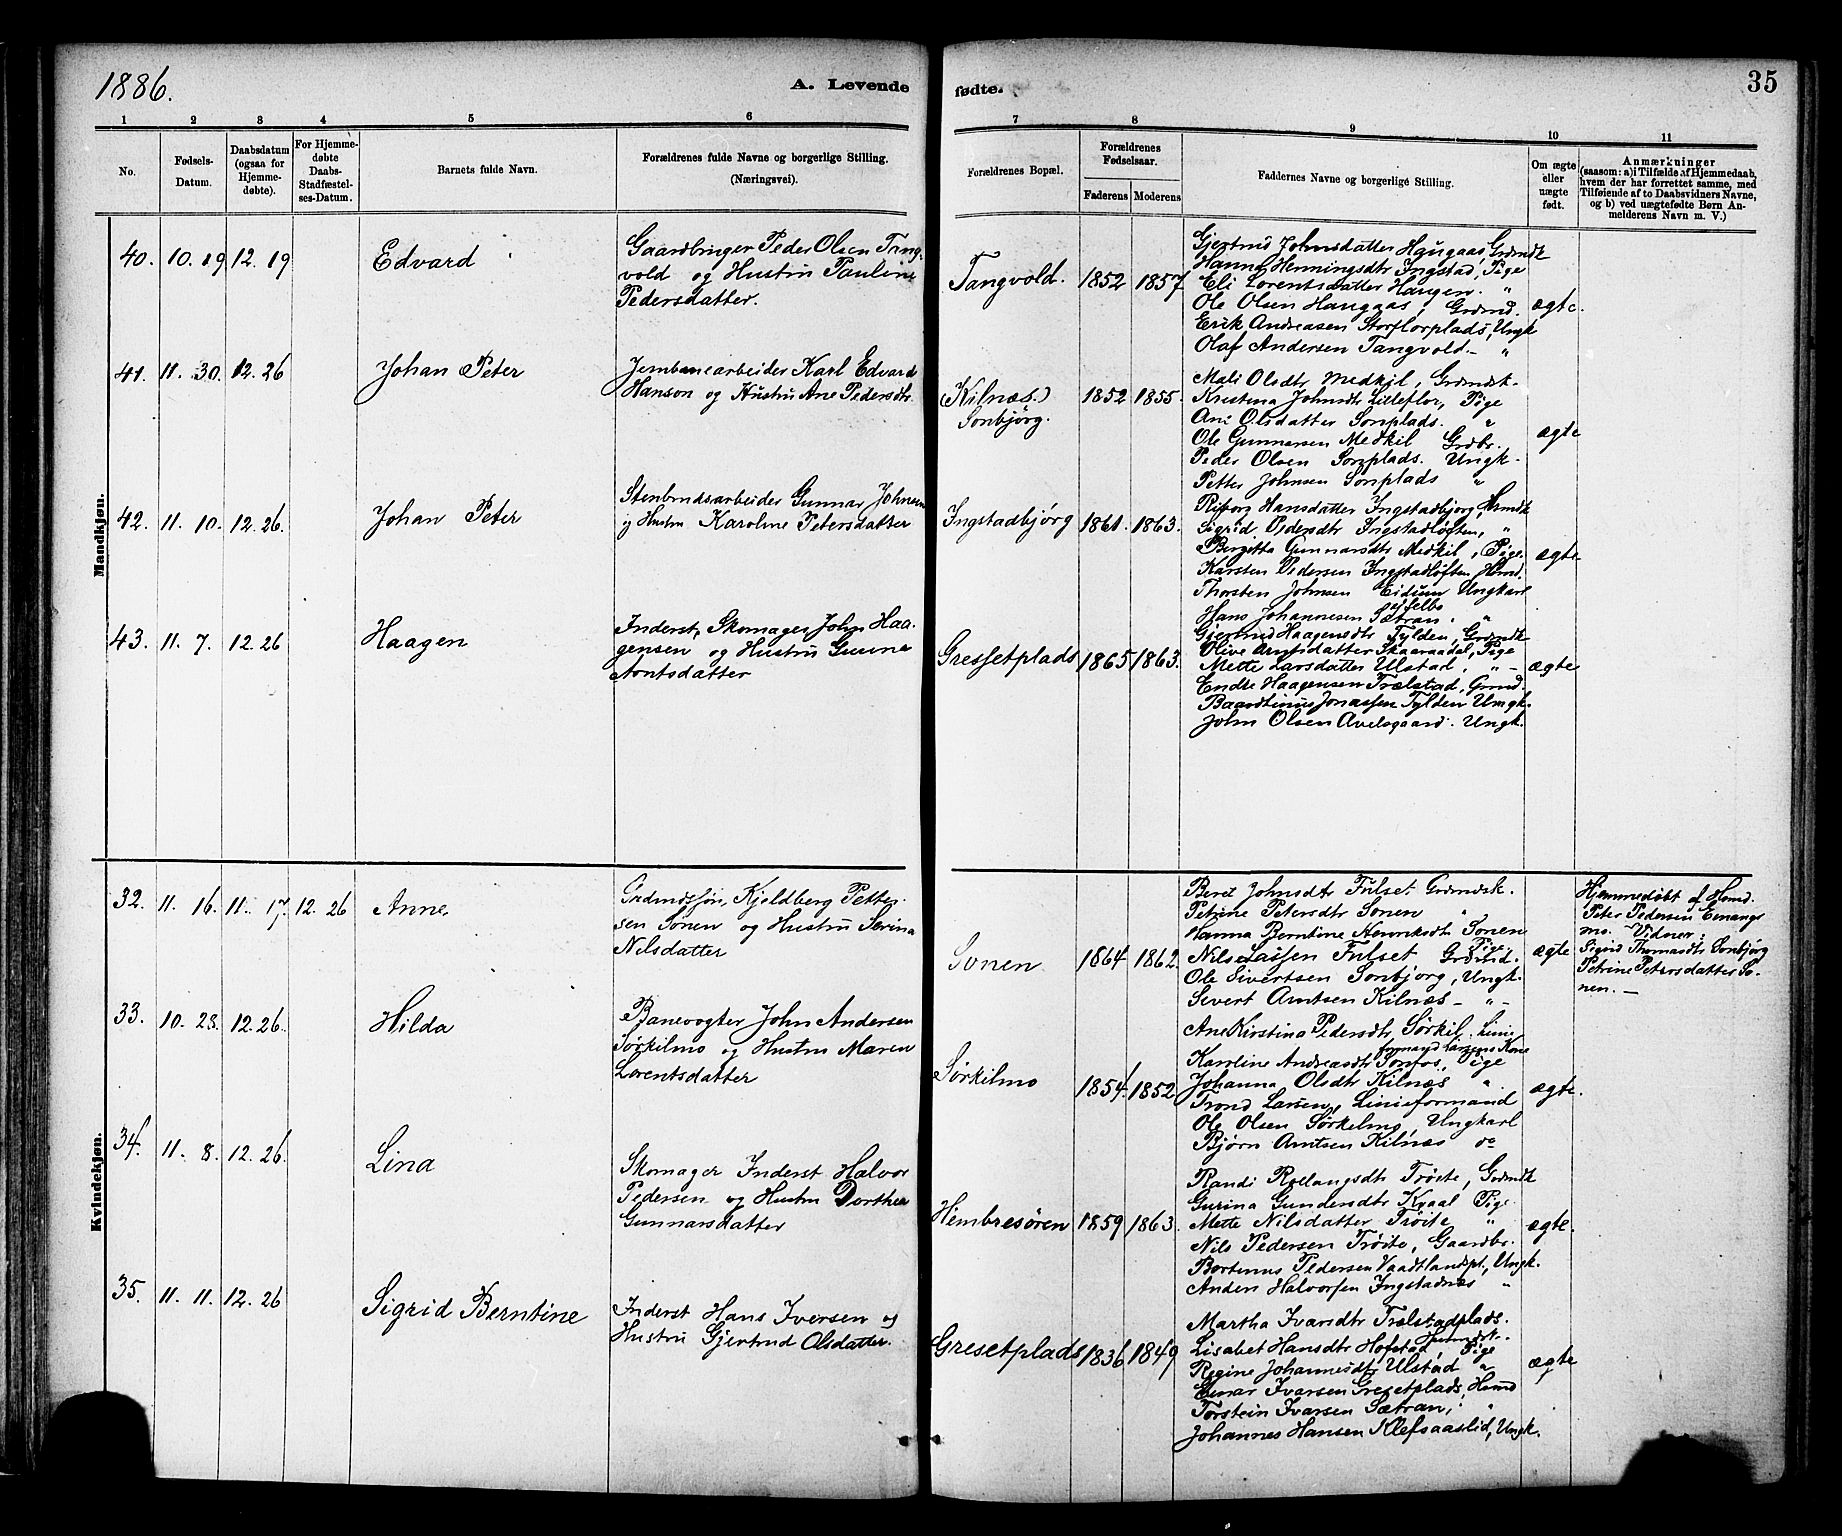 1886.
A. Levende
fødte.
35
1
2
3
4
5
6
7
8
9
10
11
No.
Fødsels-
Datum.
Daabsdatum
(ogsaa for
Hjemme-
døbte).
For Hjemme-
døbte
Daabs-
Stadfæstel-
ses-Datum.
Barnets fulde Navn.
Forældrenes fulde Navne og borgerlige Stilling.
(Næringsvei).
Forældrenes Bopæl.
Forældrenes
Fødselsaar.
Faderens
Moderens
Faddernes Navne og borgerlige Stilling.
Om ægte
eller
uægte
født.
Anmærkninger
(saasom: a) i Tilfælde af Hjemmedaab,
hvem der har forrettet samme, med
Tilføiende af to Daabsvidners Navne,
og b) ved uægtefødte Børn An-
melderens Navn m. V.)
Mandkjøn.
40. 10. 19 12. 19 Edvard
Gaardbruger Peder Olsen Tang-
vold og Hustru Pauline
Pedersdatter.
Tangvold. 1852 1857
Gjertrud Johnsdatter Haugaas, Grdmdk
Hanna Henningsdtr Ingstad, Pige
Eli Lorentsdatter Haugen. "
Ole Olsen Haugaas, Grdmd.
Erik Andreasen Storflorplads, Ungk
Olaf Andersen Tangvold. - "
ægte.
41. 11. 30. 12. 26 Johan Peter
Jernbanearbeider Karl Edvard
Hanson og Hustru Ane Pedersdtr.
(Kilnæs.)
Sonbjörg.
1852 1855.
Mali Olsdtr Medkil, Grdmdsk.
Kristina Johnsdtr Lilleflor, Pige
Ane Olsdatter Sonplads. "
Ole Gunnarsen Medkil Grdbr.
Peder Olsen Sonplads. Ungk.
Petter Johnsen Sonplads "
ægte
42. 11. 10. 12. 26. Johan Peter
Stenbrudsarbeider Gunnar Johnsen
og Hustru Karoline Petersdatter
Ingstadbjørg 1861. 1863.
Hansdatter Ingstadbjorg,
Sigrid Pedersdtr Ingstadløften, "
Bergitta Gunnarsdtr Medkil, Pige.
Karsten Pedersen Ingstadløften Hsmd.
Thorsten Johnsen Eidum Ungkarl
Hans Johannesen Sætran. "
ægte
43. 11. 7. 12. 26 Haagen
Inderst, Skomager John Haa-
gensen og Hustru
Arntsdatter
Gressetplads 1865 1863.
Gjertrud Haagensdtr Tylden, Grdmdk
Olive Arntsdatter Skaaraadal, Pige
Mette Larsdatter Ulstad, " -
Endre Haagensen Trælstad, Grmd.
Baardtinus Jonassen Tylden Ungk.
John Olsen Avelsgaard. Ungk.
ægte
Kvindekjøn.
32. 11. 16. 11. 17. 12. 26 Anne.
Grdmdssøn, Kjeldberg Petter-
sen Sonen og Hustru Serina
Nilsdatter
Sonen 1864 1862.
Beret Johnsdtr Fulset Grdmdsk.
Petrine Petersdtr Sonen "
Hanna Berntine Henriksdtr Sonen
Pige.
Nils Lassen Fulset Grdmd.
Ole Sivertsen Sonbjorg, Ungk.
Sivert Arntsen Kilnæs - " -
ægte
Hjemmedøbt af Hsmd.
Peter Pedersen Evangs
mo. - Vidner:
Sigrid Thomasdtr Sonbjörg
Petrine Petersdatter So-
nen. -
33. 10. 28. 12. 26. Hilda
Banevogter John Andersen
Sørkilmo og Hustru Maren
Lorentsdatter
Sørkilmo 1854. 1852
Ane Kirstina Pedersdtr Sørkil. Linie
formand Larsens Kone
Karoline Andreasdtr Sonfos, Pige
Johanna Olsdtr Kilnæs "
Trond Larsen, Linieformand
Ole Olsen Sørkilmo, Ungkarl
Bjørn Arntsen Kilnæs do
ægte.
34. 11. 8. 12. 26. Lina
Skomager Inderst Halvor
Pedersen og Hustru Dorthea
Gunnarsdatter
Hembresøren 1859 1863.
Randi Rollaugsdtr Trøite, Grdmdk
Gurina Gundersdtr Kvaal Pige.
Mette Nilsdatter Trøite "
Nils Pedersen Trøite, Gaardbr.
Bortinus Pedersen Vaadtlandspl., Ungk.
Anders Halvorsen Ingstadnæs "
ægte.
35. 11. 11. 12. 26 Sigrid Berntine
Inderst Hans Iversen og
Hustru Gjertrud Olsdatter.
Gresetplads 1836 1849
Martha Ivarsdtr Trælstadplads.
Husmdsk.
Lisabet Hansdtr Hofstad, Pige
Regine Johannesdtr Ulstad "
Einar Ivarsen Gresetplads, Hsmd
Torstein Ivarsen Sætran, "
Johannes Hansen Klefsaaslid, Ungk.
ægte